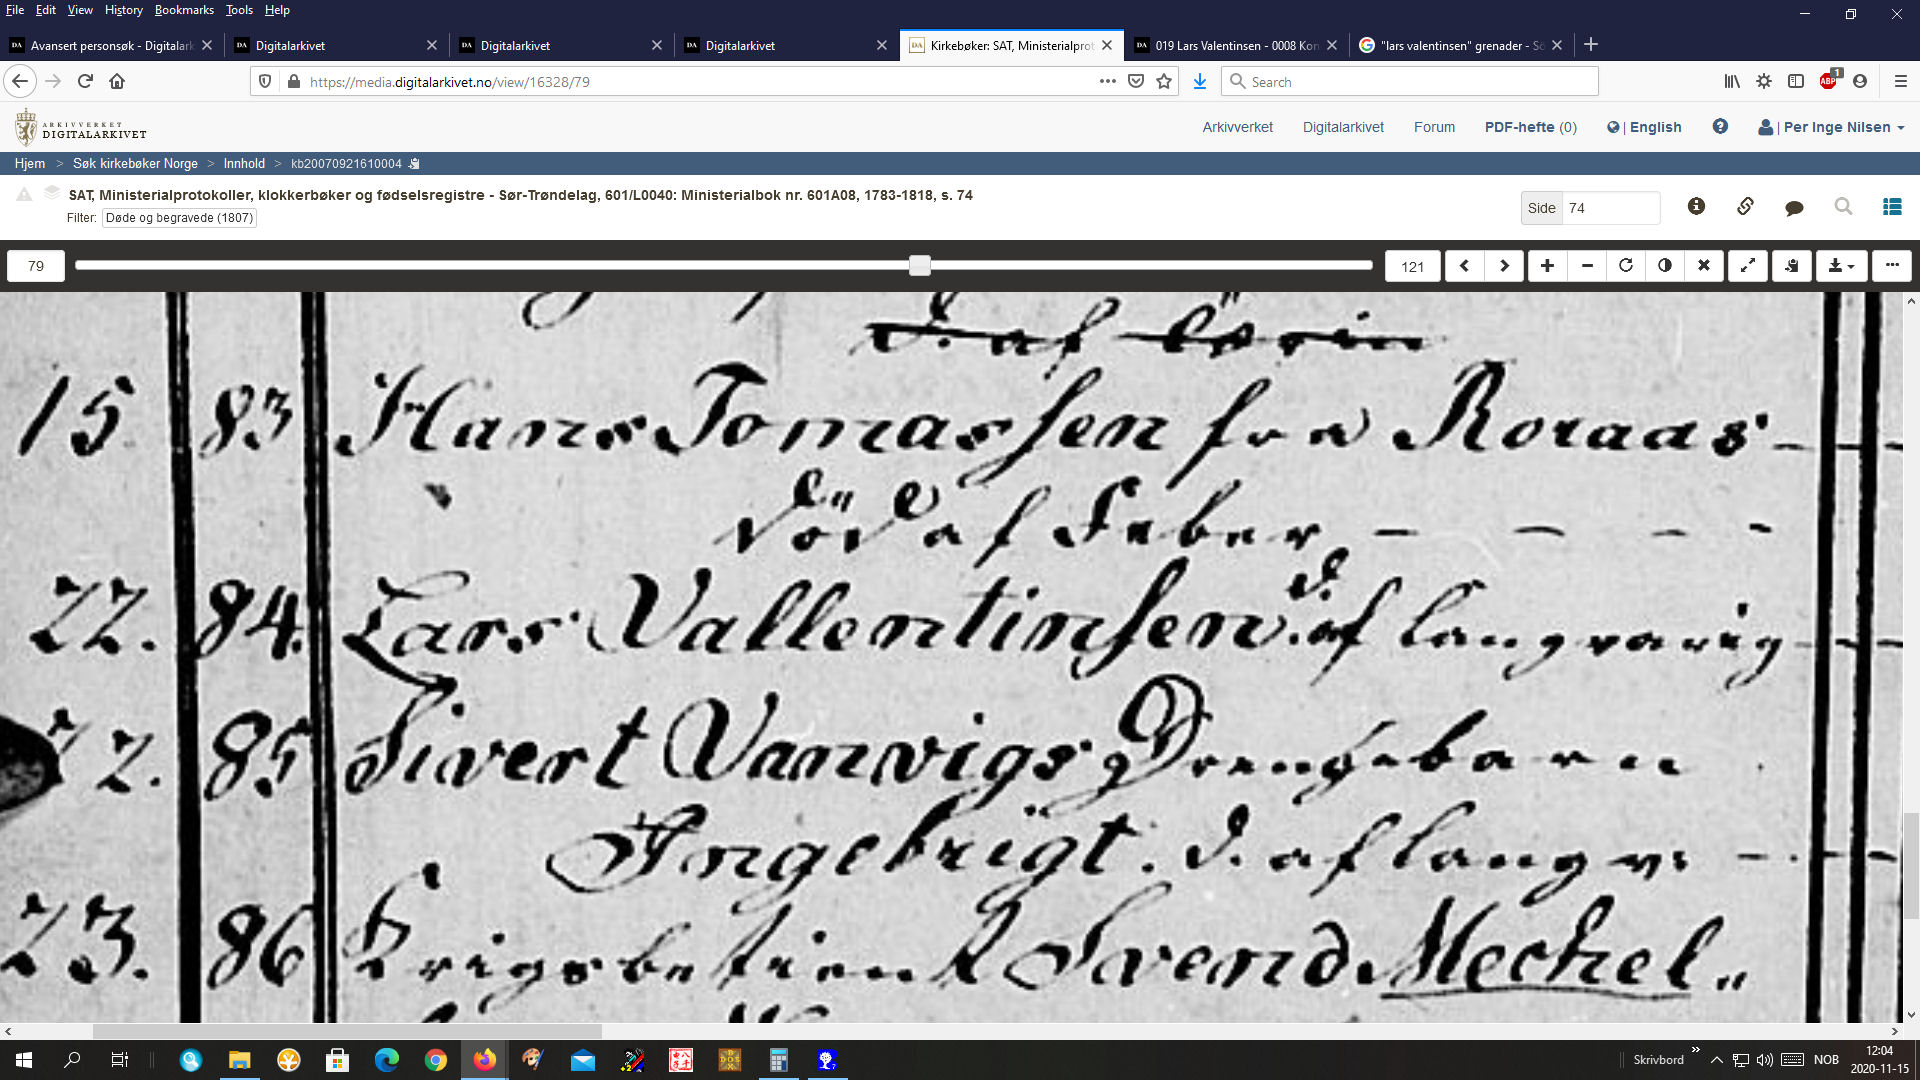 File Edit View History Bookmarks Tools Help
Avansert personsøk - Digitalark
Digitalarkivet
Digitalarkivet
Digitalarkivet
Kirkebøker: SAT, Ministerialprot
019 Lars Valentinsen - 0008 Kon
"lars valentinsen" grenader - Sö
https://media.digitalarkivet.no/view/16328/79
Search
ARKIVVERKET
DIGITALARKIVET
Arkivverket Digitalarkivet Forum PDF-hefte (0) | English | Per Inge Nilsen
Hjem > Søk kirkebøker Norge > Innhold > kb20070921610004
SAT, Ministerialprotokoller, klokkerbøker og fødselsregistre - Sør-Trøndelag, 601/L0040: Ministerialbok nr. 601A08, 1783-1818, s. 74
Filter: Døde og begravede (1807)
Side 74
79
121
D. af
15 83 Hans Tomassen fra Roraas
död af Feber
22. 84. Lars Vallentinsen d. af langvarig
22. 85 Sivert Vanvigs Drengebarn
Ingebrigt. d. af langv:
23. 86 Krigsbetient Svend Meckel
Skrivbord
NOB
12:04
2020-11-15